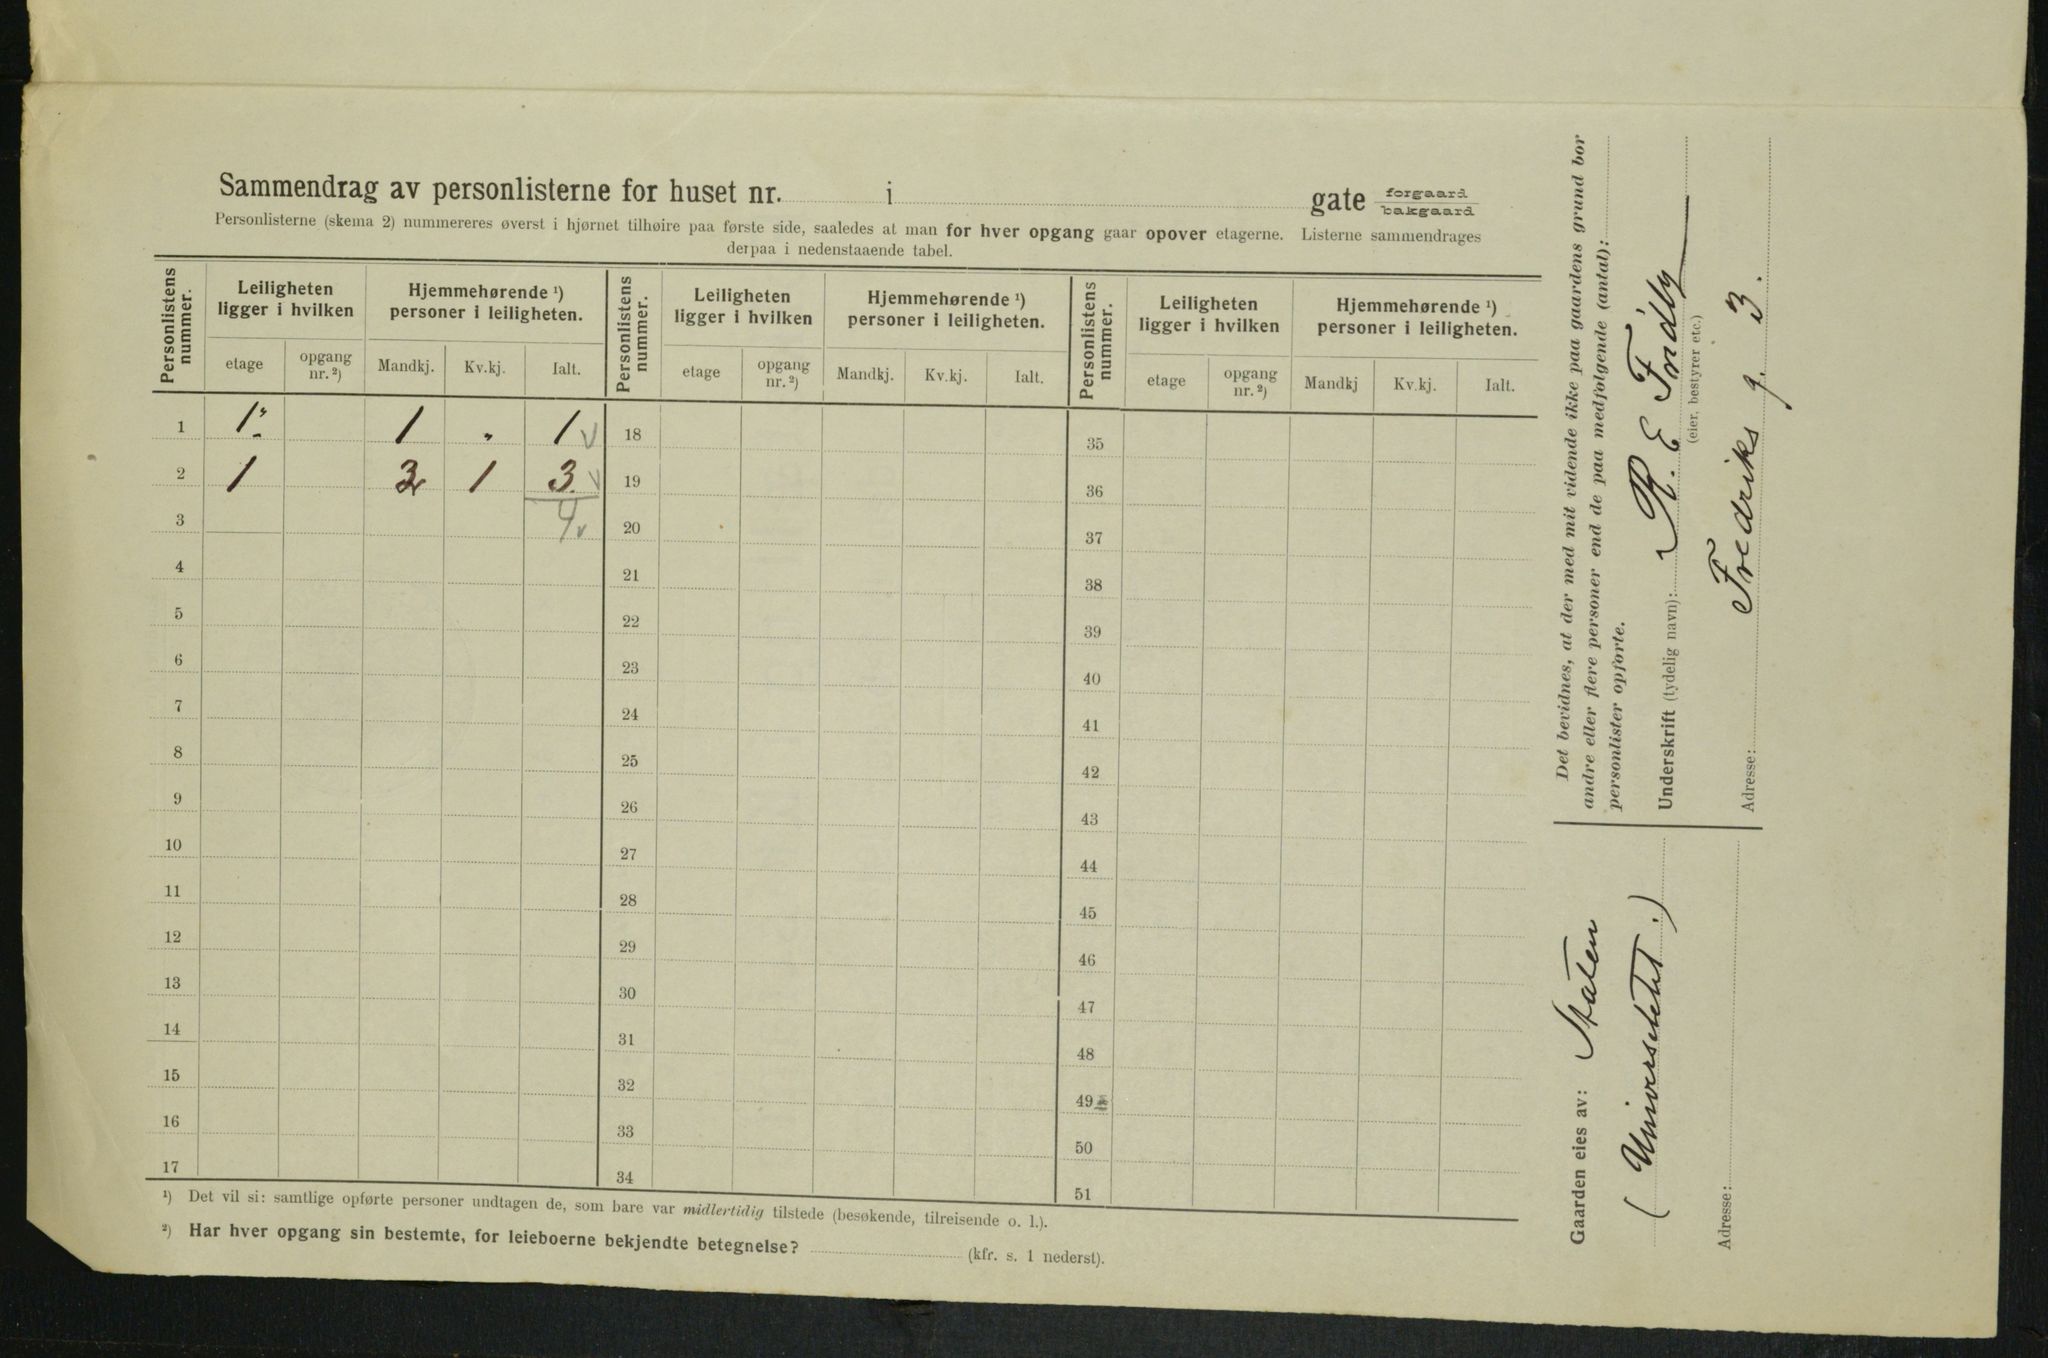 Sammendrag av personlisterne for huset nr. i gate forgaard bakgaard
Personlisterne (skema 2) nummereres øverst i hjørnet tilhøire paa første side, saaledes at man for hver opgang gaar opover etagerne. Listerne sammendrages
derpaa i nedenstaaende tabel.
Personlistens nummer. Leiligheten ligger i hvilken Hjemmehørende ¹) personer i leiligheten. Personlistens nummer. Leiligheten ligger i hvilken Hjemmehørende ¹) personer i leiligheten. Personlistens nummer. Leiligheten ligger i hvilken Hjemmehørende ¹) personer i leiligheten.
etage opgang nr. ²) Mandkj. Kv.kj. Ialt. etage opgang nr. ²) Mandkj. Kv.kj. Ialt. etage opgang nr. ²) Mandkj Kv.kj. Ialt.
1 1 1 " 1 18 35
2 1 2 1 3 19 36
3 4 20 37
4 21 38
5 22 39
6 23 40
7 24 41
8 25 42
9 26 43
10 27 44
11 28 45
12 29 46
13 30 47
14 31 48
15 32 49
16 33 50
17 34 51
¹) Det vil si: samtlige opførte personer undtagen de, som bare var midlertidig tilstede (besøkende, tilreisende o. l.).
²) Har hver opgang sin bestemte, for leieboerne bekjendte betegnelse? (kfr. s. 1 nederst).
Det bevidnes, at der med mit vidende ikke paa gaardens grund bor
andre eller flere personer end de paa medfølgende (antal):
personlister opførte.
Underskrift (tydelig navn): R. E Fridby
(eier, bestyrer etc.)
Fredriks g. 3.
Adresse:
Gaarden eies av: Staten
(Universitetet.)
Adresse: